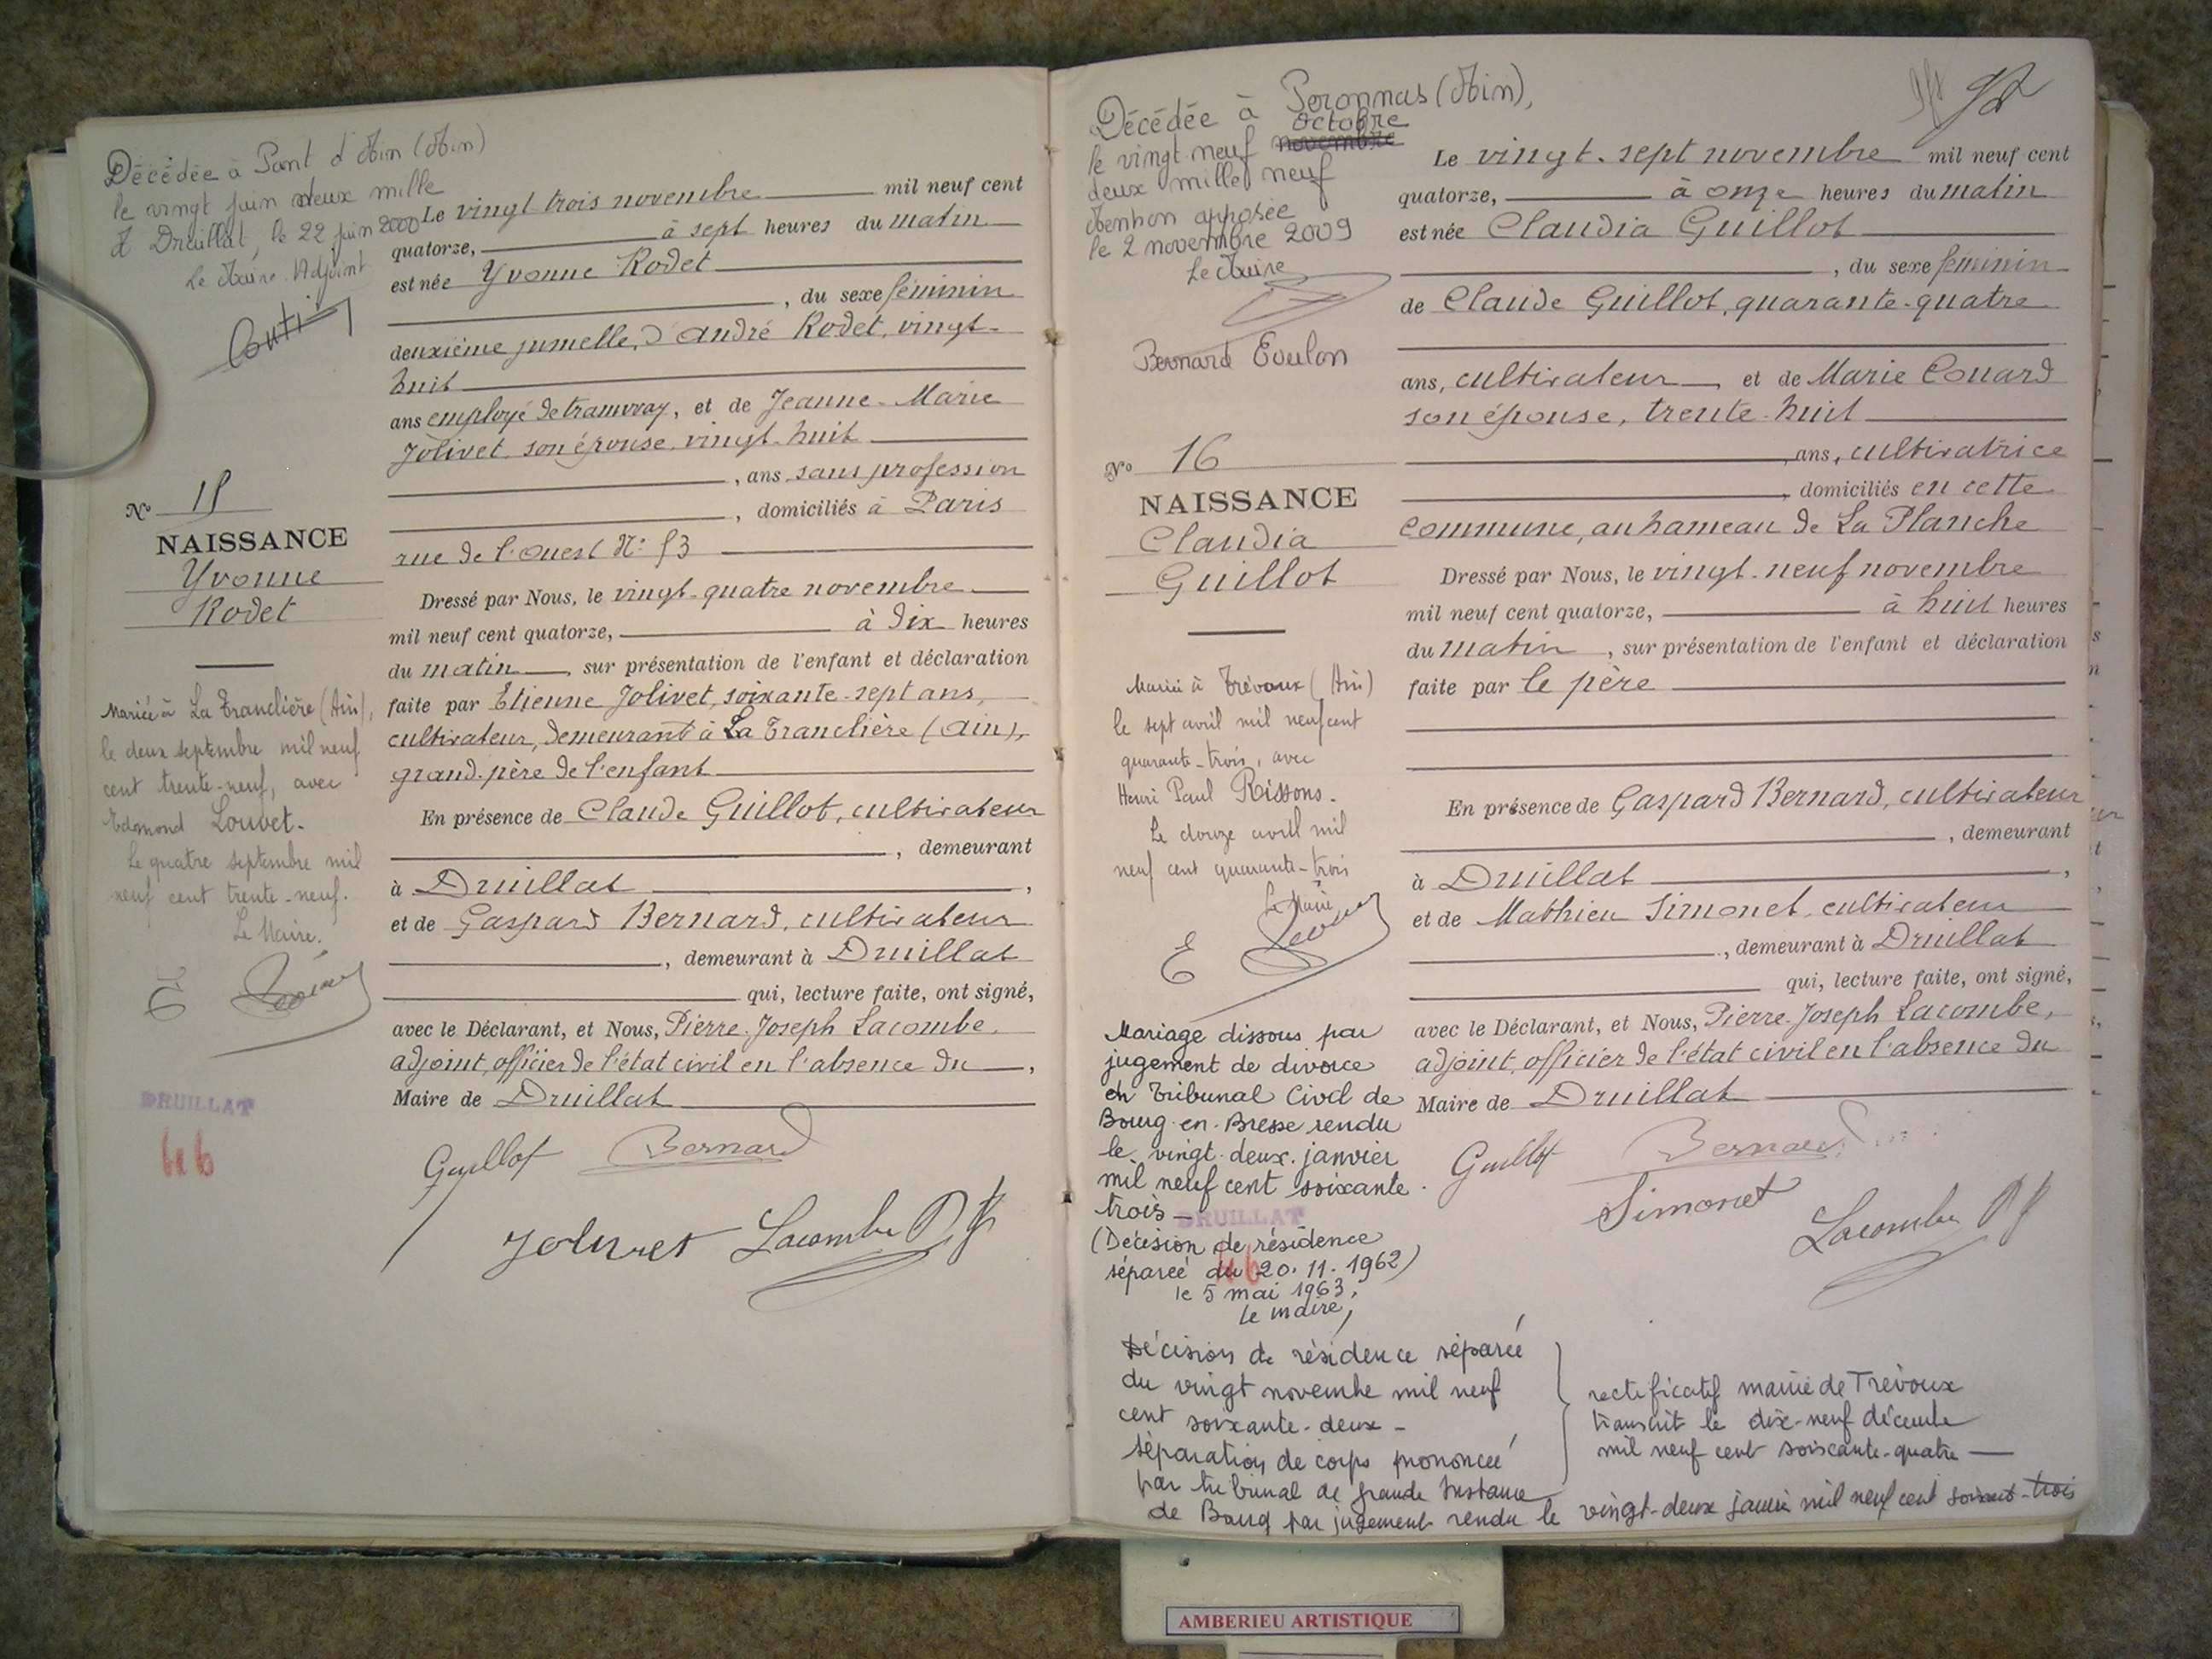 Décédée à Pont d'Ain (Ain)
le vingt juin deux mille
A Druillat, le 22 juin 2000
Le Maire Adjoint
Le vingt trois novembre mil neuf cent
quatorze, à sept heures du matin
est née Yvonne Rodet
, du sexe féminin
deuxième jumelle, d'André Rodet, vingt-
huit
ans employé de tramway, et de Jeanne-Marie
Jolivet, son épouse, vingt-huit
, ans, sans profession
, domiciliés à Paris
rue de l'ouest N: 53
Dressé par Nous, le vingt-quatre novembre
mil neuf cent quatorze, à dix heures
du matin, sur présentation de l'enfant et déclaration
faite par Etienne Jolivet, soixante-sept ans,
cultivateur, demeurant à La Tranclière (Ain),
grand-père de l'enfant
En présence de Claude Guillot, cultivateur
, demeurant
à Druillat ,
et de Gaspard Bernard, cultivateur
, demeurant à Druillat
qui, lecture faite, ont signé,
avec le Déclarant, et Nous, Pierre-Joseph Lacombe,
adjoint, officier de l'état civil en l'absence du ,
Maire de Druillat
Guillot Bernard
Jolivet Lacombe
No 15
NAISSANCE
Yvonne
Rodet
Mariée à La Tranclière (Ain),
le deux septembre mil neuf
cent trente-neuf, avec
Edmond Louvet.
Le quatre septembre mil
neuf cent trente-neuf.
Le Maire.
DRUILLAT
46
Décédée à Peronnas (Ain),
octobre
le vingt-neuf novembre
deux mille neuf
Mention apposée
le 2 novembre 2009
Le Maire
Bernard
92
Le vingt-sept novembre mil neuf cent
quatorze, à onze heures du matin
est née Claudia Guillot
, du sexe féminin
de Claude Guillot, quarante-quatre
ans, cultivateur, et de Marie Couard
son épouse, trente-huit
, ans, cultivatrice
, domiciliés en cette
commune, au hameau de La Planche
Dressé par Nous, le vingt-neuf novembre
mil neuf cent quatorze, à huit heures
du matin, sur présentation de l'enfant et déclaration
faite par le père
En présence de Gaspard Bernard, cultivateur
, demeurant
à Druillat ,
et de Mathieu Simonet, cultivateur
, demeurant à Druillat
qui, lecture faite, ont signé,
avec le Déclarant, et Nous, Pierre-Joseph Lacombe,
adjoint, officier de l'état civil en l'absence du
Maire de Druillat
Guillot Bernard
Simonet
Lacombe
No 16
NAISSANCE
Claudia
Guillot
Mariée à Trévoux (Ain)
le sept avril mil neuf cent
quarante-trois, avec
Henri Paul Rissons.
Le douze avril mil
neuf cent quarante-trois
Le Maire
Mariage dissous par
jugement de divorce
du Tribunal Civil de
Bourg-en-Bresse rendu
le vingt-deux janvier
mil neuf cent soixante-
trois -
DRUILLAT
(Décision de résidence
séparée du 20.11.1962)
46
le 5 mai 1963,
Le maire,
Décision de résidence séparée
du vingt novembre mil neuf
cent soixante-deux -
séparation de corps prononcée
par tribunal de grande Instance
de Bourg par jugement rendu le vingt-deux janvier mil neuf cent soixante-trois
rectificatif mairie de Trévoux
transcrit le dix-neuf décembre
mil neuf cent soixante-quatre
AMBERIEU ARTISTIQUE